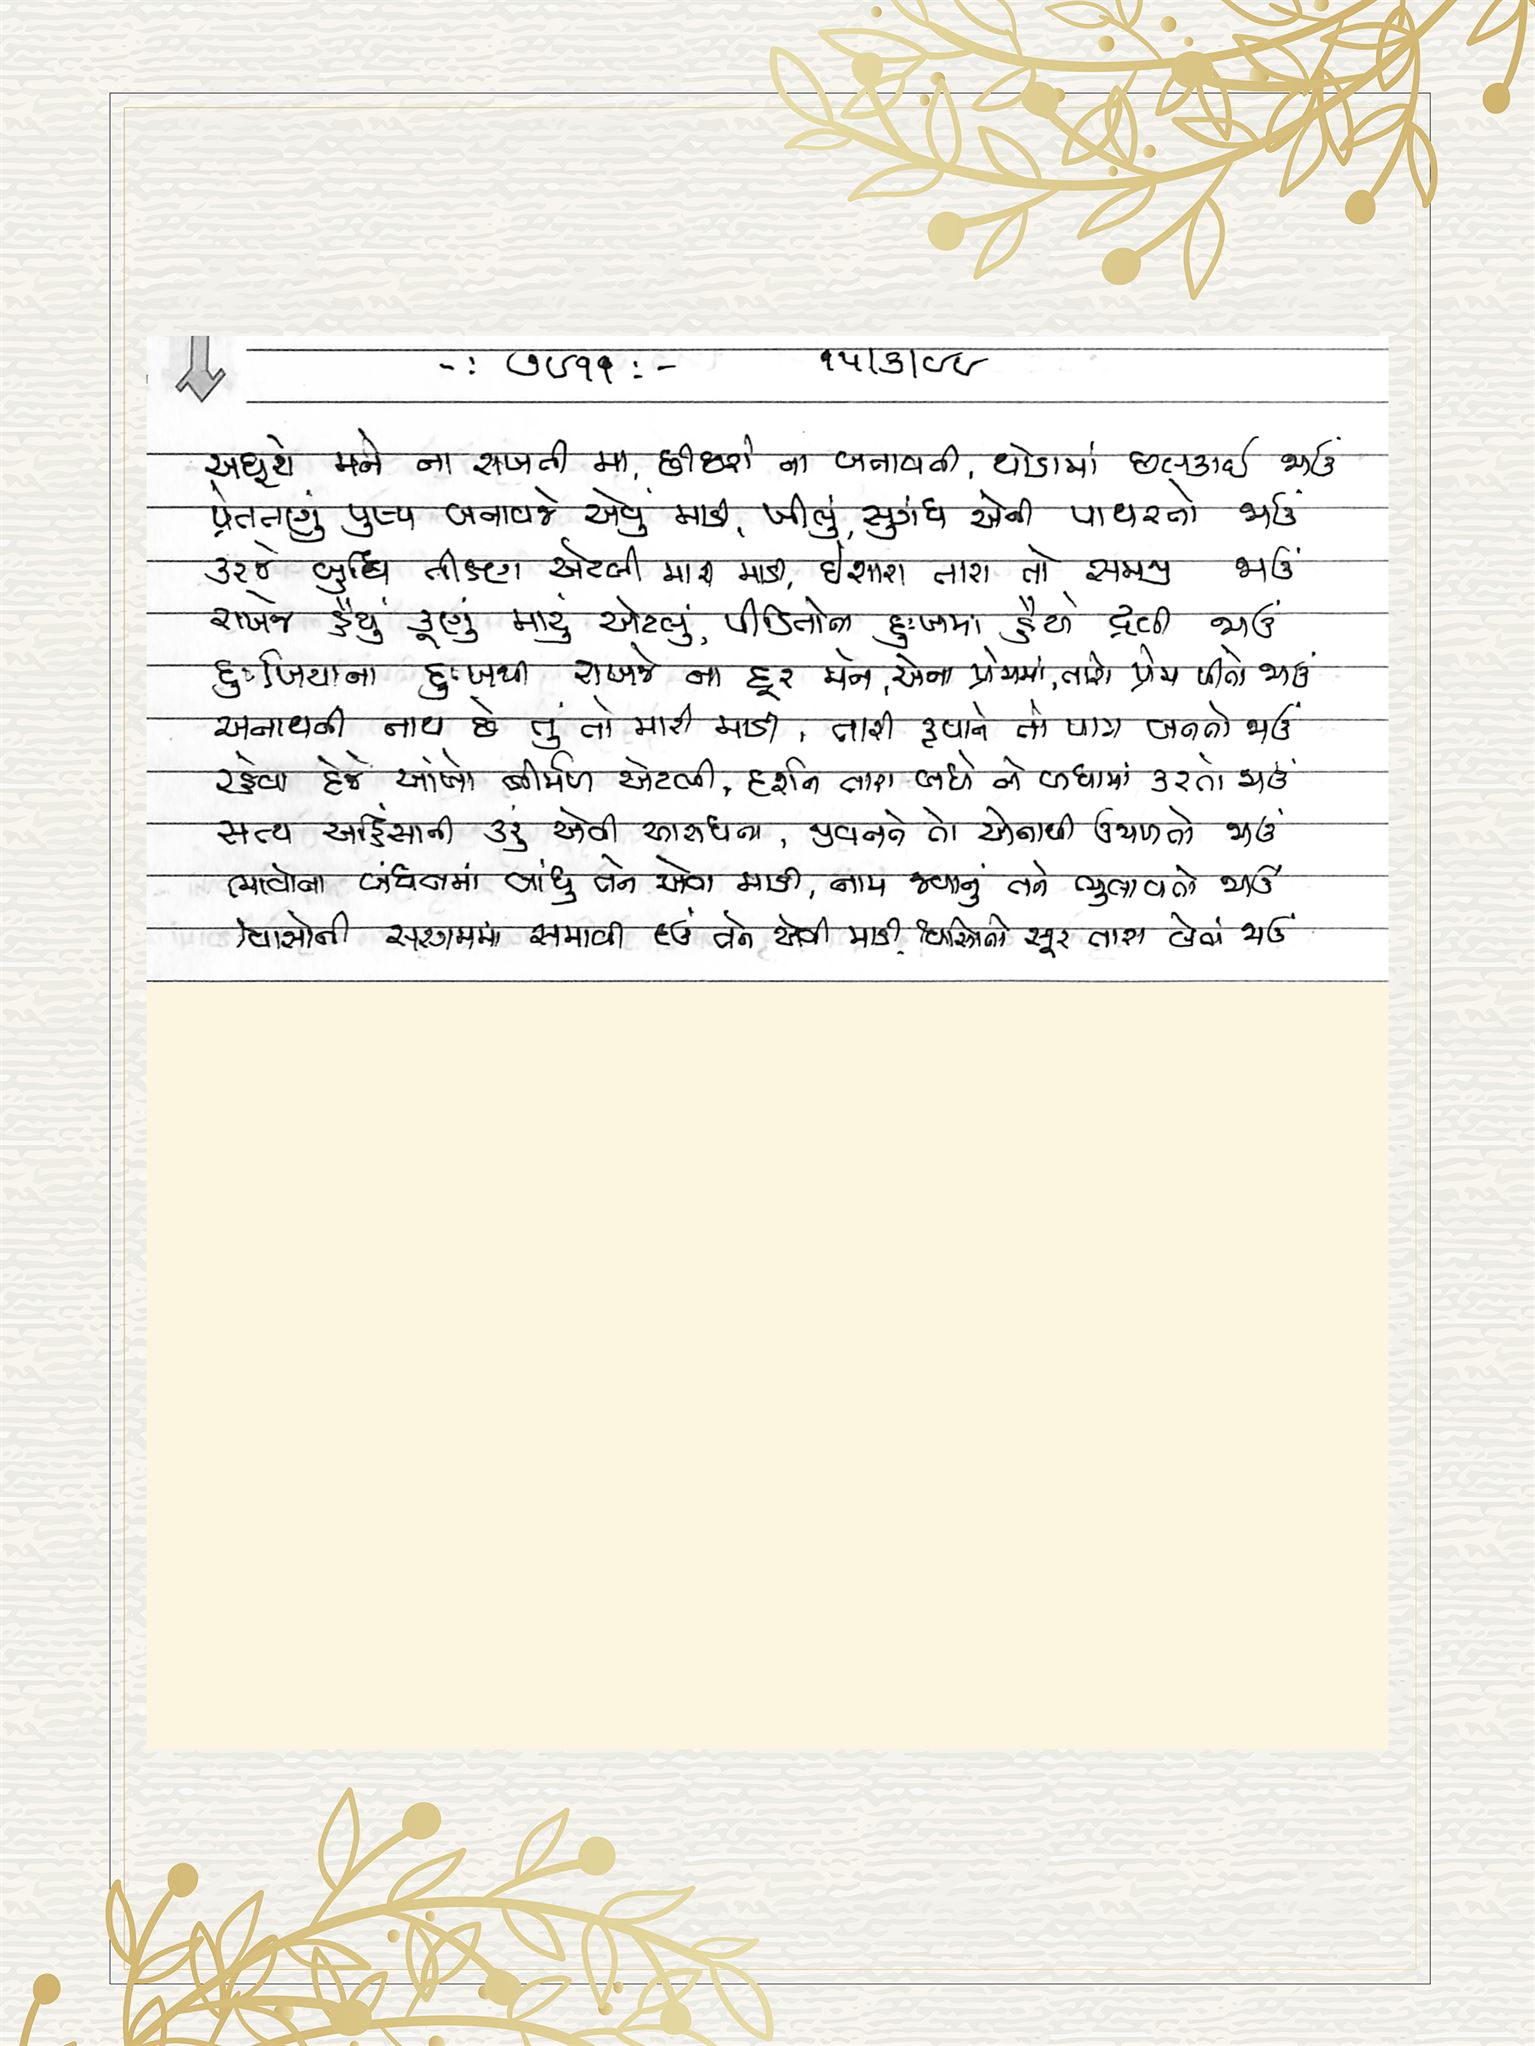 -: ૭૯૧૧ :- ૧૫/૩/૯૯
અધૂરો મને ના રાખતી મા, છીછરો ના બનાવતી, થોડામાં છલકાઈ જાઉં
પ્રેમતણું પુષ્પ બનાવજે એવું માડી, ખીલું, સુગંધ એની પાથરતો જાઉં
કરજે બુદ્ધિ તીક્ષ્ણ એટલી મારી માડી, ઇશારા તારા તો સમજી જાઉં
રાખજે હૈયું કૂણું મારું એટલું, પીડિતોના દુઃખમાં હૈયે દ્રવી જાઉં
દુઃખિયાના દુઃખથી રાખજે ના દૂર મને, એના પ્રેમમાં, તારો પ્રેમ પીતો જાઉં
અનાથની નાથ છે તું તો મારી માડી, તારી કૃપાને તો પાત્ર બનતો જાઉં
રહેવા દેજે આંખો નીર્મળ એટલી, દર્શન તારા બધે ને બધામાં કરતો જાઉં
સત્ય અહિંસાની કરું એવી આરાધના, જીવનને તો એનાથી ઉજાળતો જાઉં
ભાવોના બંધનમાં બાંધુ તને એવા માડી, નામ જવાનું તને ભુલાવતો જાઉં
શ્વાસોની સરગમમાં સમાવી દઉં તને એવી માડી, શ્વાસોનો સૂર તારા લેતો જાઉં